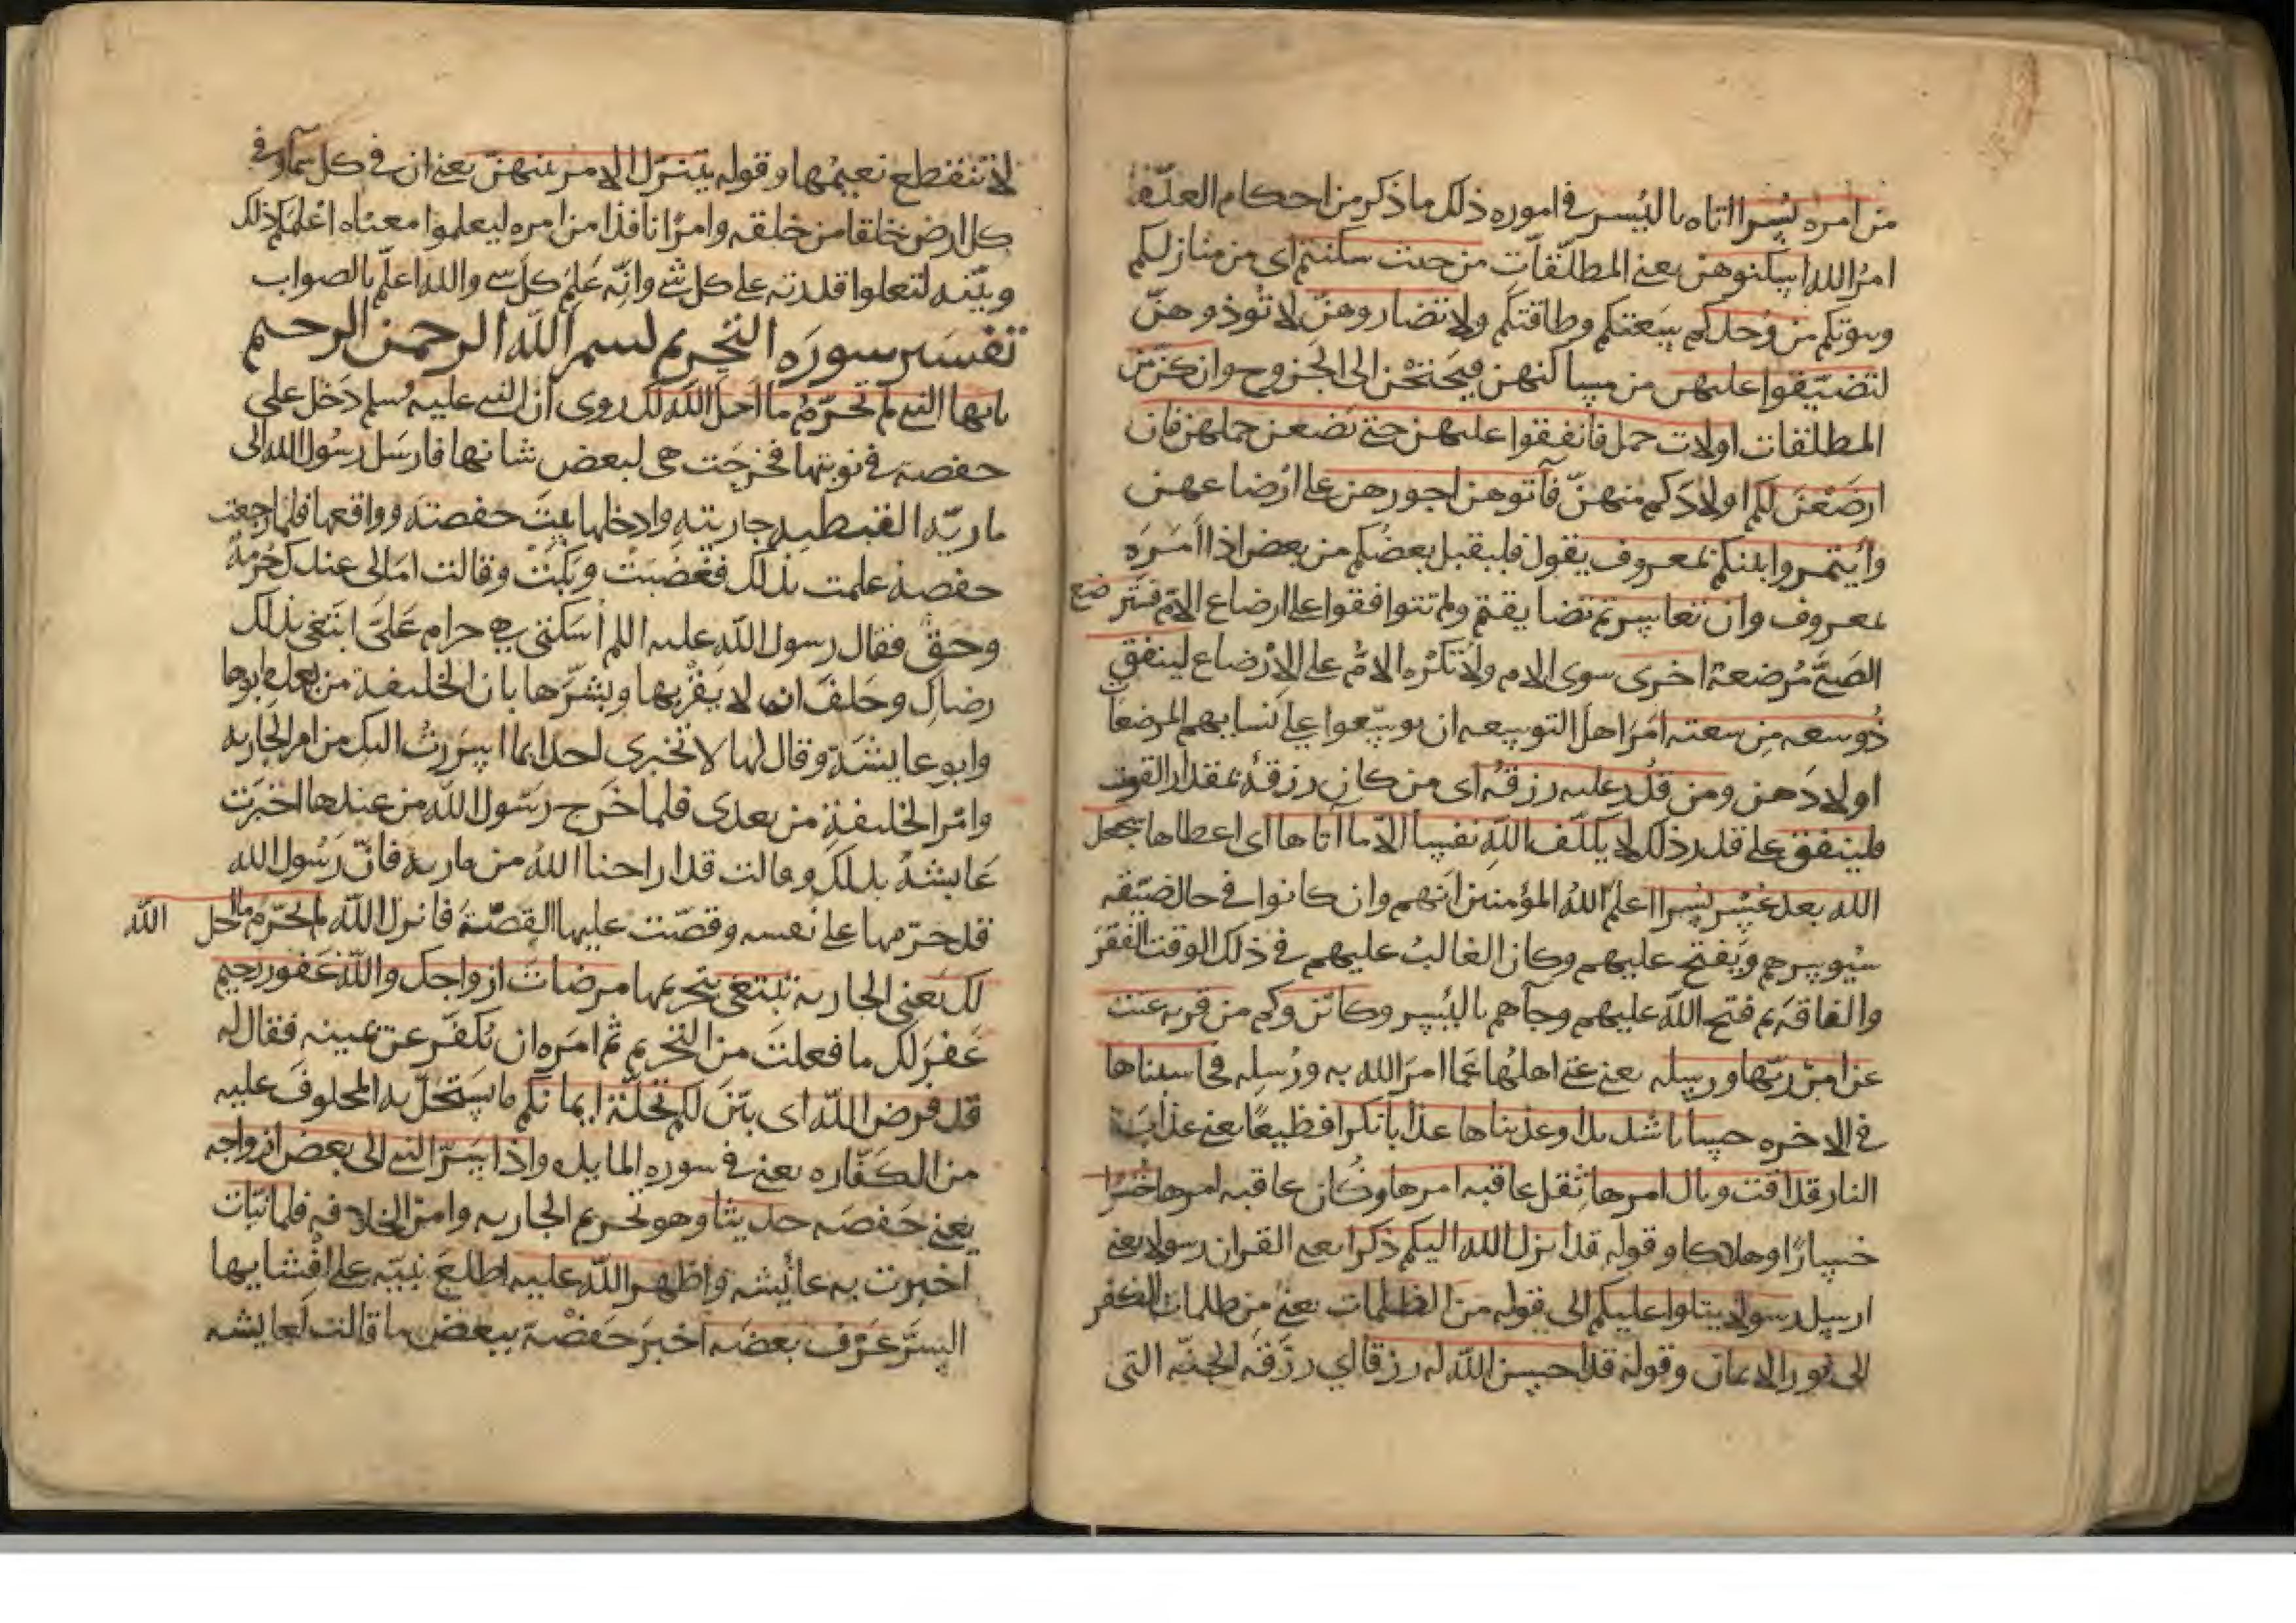 من امره يسرا اتاه باليسر في اموره ذلك ما ذكر من احكام العدّة
امر الله اسكنوهن يعني المطلّقات من حيث سكنتم اي من منازلكم
وبيوتكم من وُجدكم بسَعتكم وطاقتكم ولا تضاروهنّ لا تؤذوهنّ
لتضيّقوا عليهن من مساكنهن فيحتجن الى الخروج وان كنّ من
المطلقات اولات حمل فانفقوا عليهن حتى يضعن حملهن فان
ارضَعْنَ لكم اولادَكم منهنّ فآتوهن اجورهن على ارضاعهن
وأتمروا بينكم بمعروف يقول فليقبل بعضُكم من بعض اذا أمَرَه
بمعروف وان تعاسرتم تضايقتم ولم تتوافقوا على ارضاع الام فسترضع
الصَبيَّ مُرضعة اخرى سوى الام ولا تُكرَه الامُّ على الارضاع لينفق
ذُو سعه مِن سعته امَرَ اهل التوسعه ان يوسّعوا على نسايهم المرضعات
اولادَهن ومن قُدر عليه رزقُه اى من كان رزقُه بمقدار القوت
فلينفق على قدر ذلك لا يكلّف الله نفسا الاّ ما آتاها اى اعطاها سيجعل
الله بعد عُسْرٍ يُسرا اعلَمَ اللهُ المؤمنين انهم وان كانوا في حال ضيّقه
سيُوسرهم ويَفتح عليهم وكان الغالبُ عليهم في ذلك الوقت الفقرَ
والفاقةَ ثم فتح الله عليهم وجآهم باليُسر وكايّن وكم من قريه عتت
عن امرْ ربّها ورسله يعني عتى اهلُها عَمّا امرَ الله به ورُسله فحاسبناها
في الاخره حسابا شديدا وعذبناها عذابا نكرا فظيعًا يعني عذابَ
النار فذاقت وبال امرها ثقل عاقبه امرها وكان عاقبه امرها خُسْرا
خسارًا وهلاكا وقوله قد انزل الله اليكم ذكرا يعني القران رسولا يعني
ارسل رسولا يتلوا عليكم الى قوله من الظلمات يعني من ظلمات الكفر
الى نور الايمان وقوله قد احسن الله له رزقا اي رزَقَه الجنّه التي
لا تنقطع نعيمُها وقوله يتنزّل الامر بينهنّ يعني ان في كل سمآ وفي
كل ارض خلقا من خلقه وامرًا نافذا من امره ليعلموا معناه اعلمكم ذلك
وبيّنه لتعلموا قدرته على كل شئ وانّه عَلِمَ كلّ شي والله اعلم بالصواب
تفسير سوره التحريم بسم الله الرحمن الرحيم
يايها النبي لم تحرّمُ ما احل الله لك روى انّ النبي عليه سلم دَخل على
حفصة في نوبتها فخرجَت هي لبعض شانها فارسَل رسُول الله الى
ماريّه القبطيه جاريته وادخلها بيتَ حفصته وواقعها فلما رجعت
حفصة علمت بذلك فغضبَتْ وبَكتْ وقالت امَا لي عندك حُرمةٌ
وحَقّ فقال رسول الله عليه اللم أسكتي هي حرام عَلَىَّ ابتغى بذلك
رضاكِ وحَلَفَ ان لا يقْربها وبشّرها بان الخليفة من بعده ابوها
وابو عايشَة وقال لها لا تخبري احدا بما اسرَرتُ اليكِ من امر الجاريه
وامْرَ الخليفةِ من بعدى فلما خَرج رسُول الله من عندها اخبَرت
عَايشةَ بذلك وقالت قد اراحنا اللهُ من ماريه فانّ رَسُول الله
قد حَرّمها على نفسه وقصّت عليها القصّةَ فانزل الله لم تحرّم ما احل الله
لك يعني الجاريه تبتغى بتحريمها مرضاتَ ازواجك والله غفور رحيم
غَفرَ لك ما فعلتَ من التحريم ثم امَره ان يُكفّر عن يمينه فقال له
قد فرض الله اى بيّنَ لكم تحلّةَ ايمانكم ما يستحلّ به المحلوفَ عليه
من الكفّاره يعني في سوره المايده واذا اسَرّ النبي الى بعض ازواجه
يعني حَفصَه حديثا وهو تحريم الجاريه وامرُ الخلافه فلما نبّات
اخبرت به عائيشه واظهره الله عليه اطلعَ نبيّه على افشايها
السرَّ عَرّف بعضَه اخبرَ حَفصْة ببعض ما قالت لعايشه